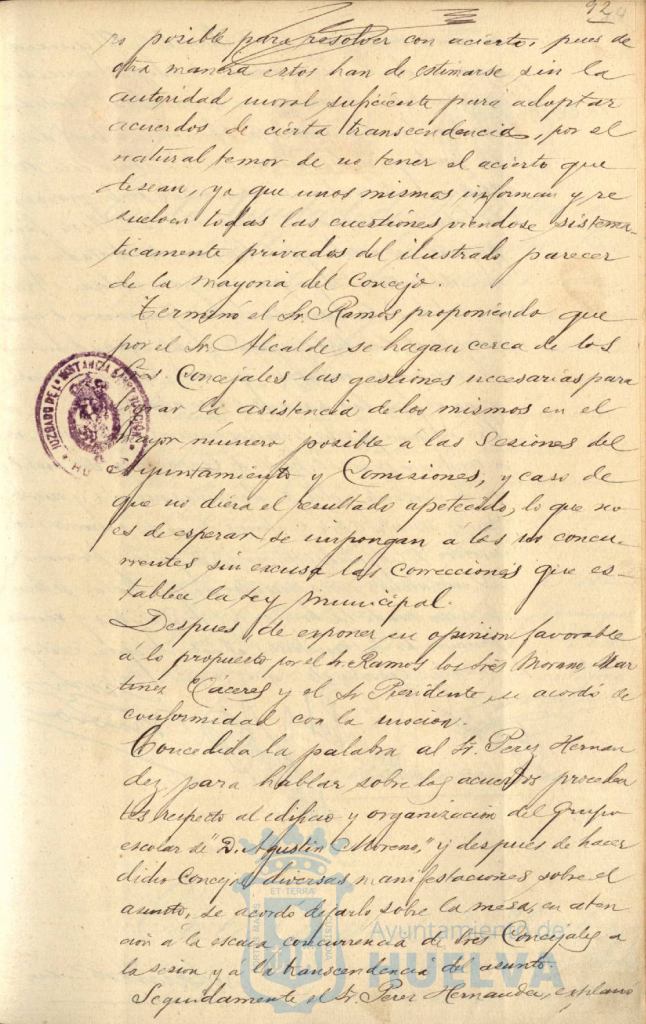 92
ro posible para resolver con acierto, pues de
otra manera estos han de estimarse sin la
autoridad moral suficiente para adoptar
acuerdos de cierta transcendencia, por el
natural temor de no tener el acierto que
desean, ya que unos mismos informan y re
suelven todas las cuestiones viendose sistema-
ticamente privados del ilustrado parecer
de la mayoria del Concejo.
Terminó el Sr. Ramos proponiendo que
por el Sr. Alcalde se hagan cerca de los
Concejales las gestiones necesarias para
la asistencia de los mismos en el
mayor número posible á las Sesiones del
Ayuntamiento y Comisiones, y caso de
que no diera el resultado apetecido, lo que no
es de esperar se impongan á los no concu-
rrentes sin excusa las correcciones que es-
tablece la Ley Municipal.
Despues de exponer su opinion favorable
á lo propuesto por el Sr. Ramos los Sres Moreno, Mar
tinez Cáceres y el Sr Presidente, se acordó de
conformidad con la mocion.
Concedida la palabra al Sr. Perez Hernan
dez para hablar sobre los acuerdos proceden
tes respecto al edificio y organizacion del Grupo
escolar de "D. Agustin Moreno," y despues de hacer
dicho Concejal diversas manifestaciones sobre el
asunto, se acordó dejarlo sobre la mesa, en aten
ción á la escasa concurrencia de Sres Concejales a
la sesion y á la transcendencia del asunto.
Seguidamente el Sr. Perez Hernandez, explanó
JUZGADO DE 1ª INSTANCIA
ET TERRA
Ayuntamiento de
HUELVA